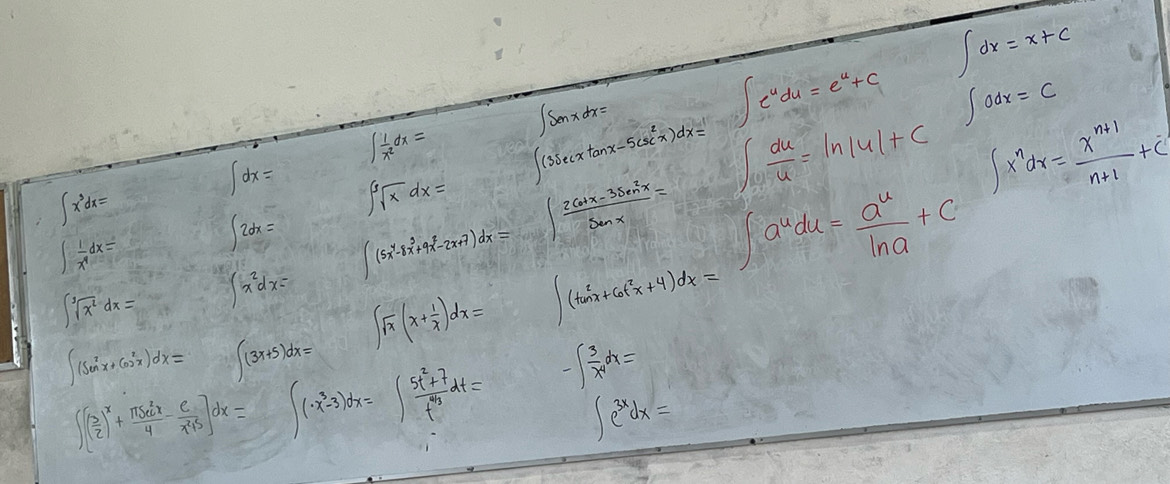 ∫x³dx=
∫1/x⁴ dx=
∫∛x² dx=
∫(Sen²x+Cos²x)dx=
∫[(3/2)ˣ + πSec²x/4 - e/(x²+5)]dx=
∫dx=
∫2dx=
∫x²dx=
∫(3x+5)dx=
∫(·x³-3)dx=
∫1/x² dx=
∫∛x dx=
∫(5x⁴-8x³+9x²-2x+7)dx=
∫√x(x+1/x)dx=
∫(5t²+7)/t^(4/3) dt=
∫Sen x dx=
∫(3Secx tanx-5csc²x)dx=
∫(2Cotx-3Sen²x)/Sen x =
∫(tan²x+Cot²x+4)dx=
-∫3/x⁴ dx=
∫e³ˣdx=
∫eᵘdu=eᵘ+C
∫du/u=ln|u|+C
∫aᵘdu=aᵘ/ln a+C
∫dx=x+C
∫0dx=C
∫xⁿdx=xⁿ⁺¹/(n+1)+C